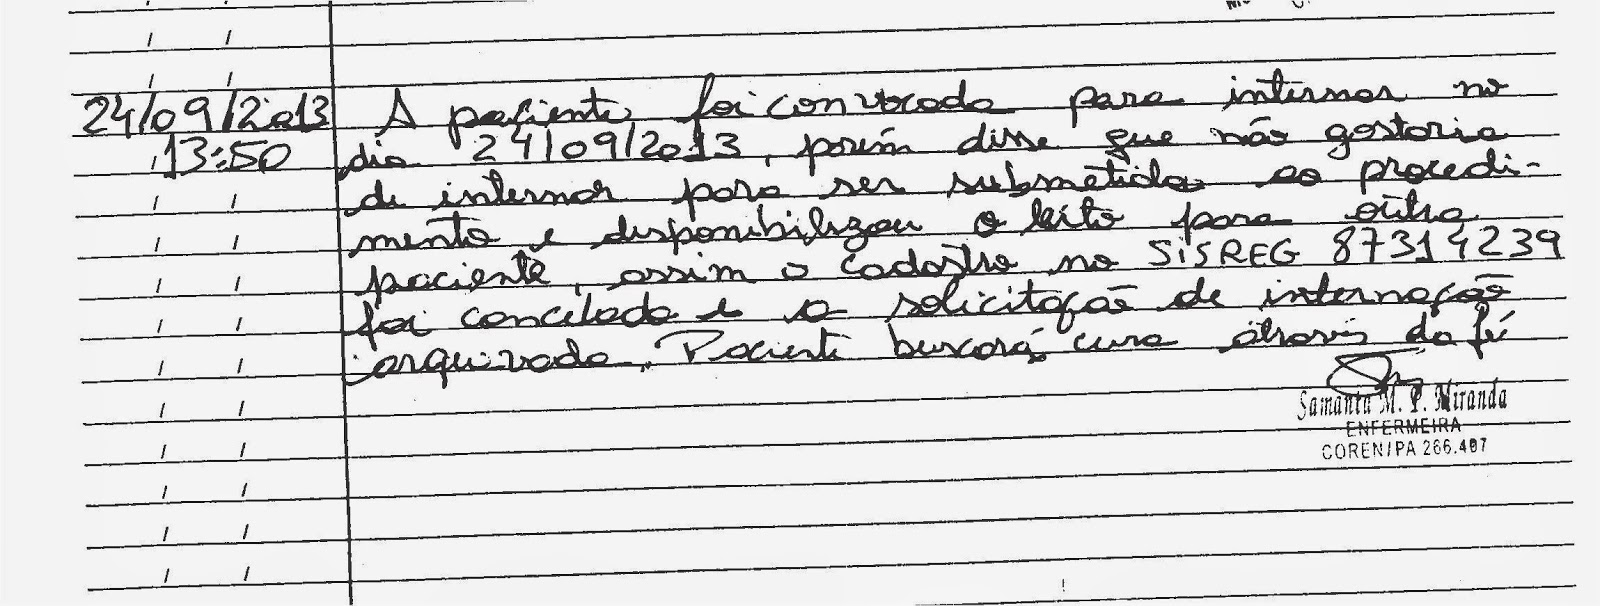 24/09/2013 A paciente foi convocada para internar no
13:50 dia 24/09/2013, porém disse que não gostaria
de internar para ser submetida ao procedi-
mento e disponibilizou o leito para outra
paciente, assim o cadastro no SISREG 87314239
foi cancelado e a solicitação de internação
arquivada. Paciente buscará cura através da fé
Samanta M. P. Miranda
ENFERMEIRA
COREN/PA 266.497